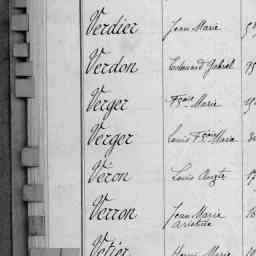 Verdier Jean Marie
Verdon Edouard Gabriel
Verger Fçois Marie
Verger Louis Fçois Marie
Véron Louis Augte
Verron Jean Marie
Aristide
Vétier Marie